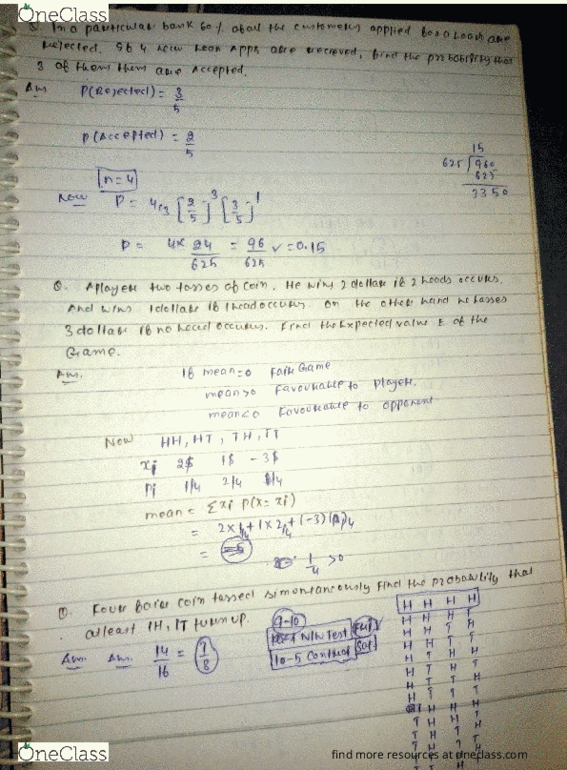 OneClass
Q. In a particular bank 60% about the customers applied for a loan are
rejected. If 4 new loan Apps are recieved, find the probability that
3 of them them are accepted.
Ans P(Rejected) = 3/5
P(Accepted) = 2/5
n=4
Now P = 4c3 [2/5]^3 [3/5]^1
15
625 ) 960
625
3350
P = 4x 24/625 = 96/625 ✓ = 0.15
Q. A player two tosses of coin. He wins 2 dollars if 2 heads occurs.
And wins 1 dollar if 1 head occurs. On the other hand he losses
3 dollar if no head occurs. Find the Expected value E of the
Game.
Ans. If mean=0 Fair Game
mean>0 Favourable to player.
mean<0 Favourable to opponent
Now HH, HT, TH, TT
xi 2$ 1$ -3$
Pi 1/4 2/4 1/4
mean = Σxi P(x=xi)
= 2x1/4+1x2/4+(-3)1/4
=
1/4 >0
Q. Four coin tossed simontaneously Find the probability that
atleast 1H, 1T turn up.
Ans. Ans. 14/16 = 7/8
9-10
N/W Test
10-5 Sat
H H H H
H H H T
H H T H
H H T T
H T H H
H T H T
H T T H
H T T T
OneClass
find more resources at oneclass.com